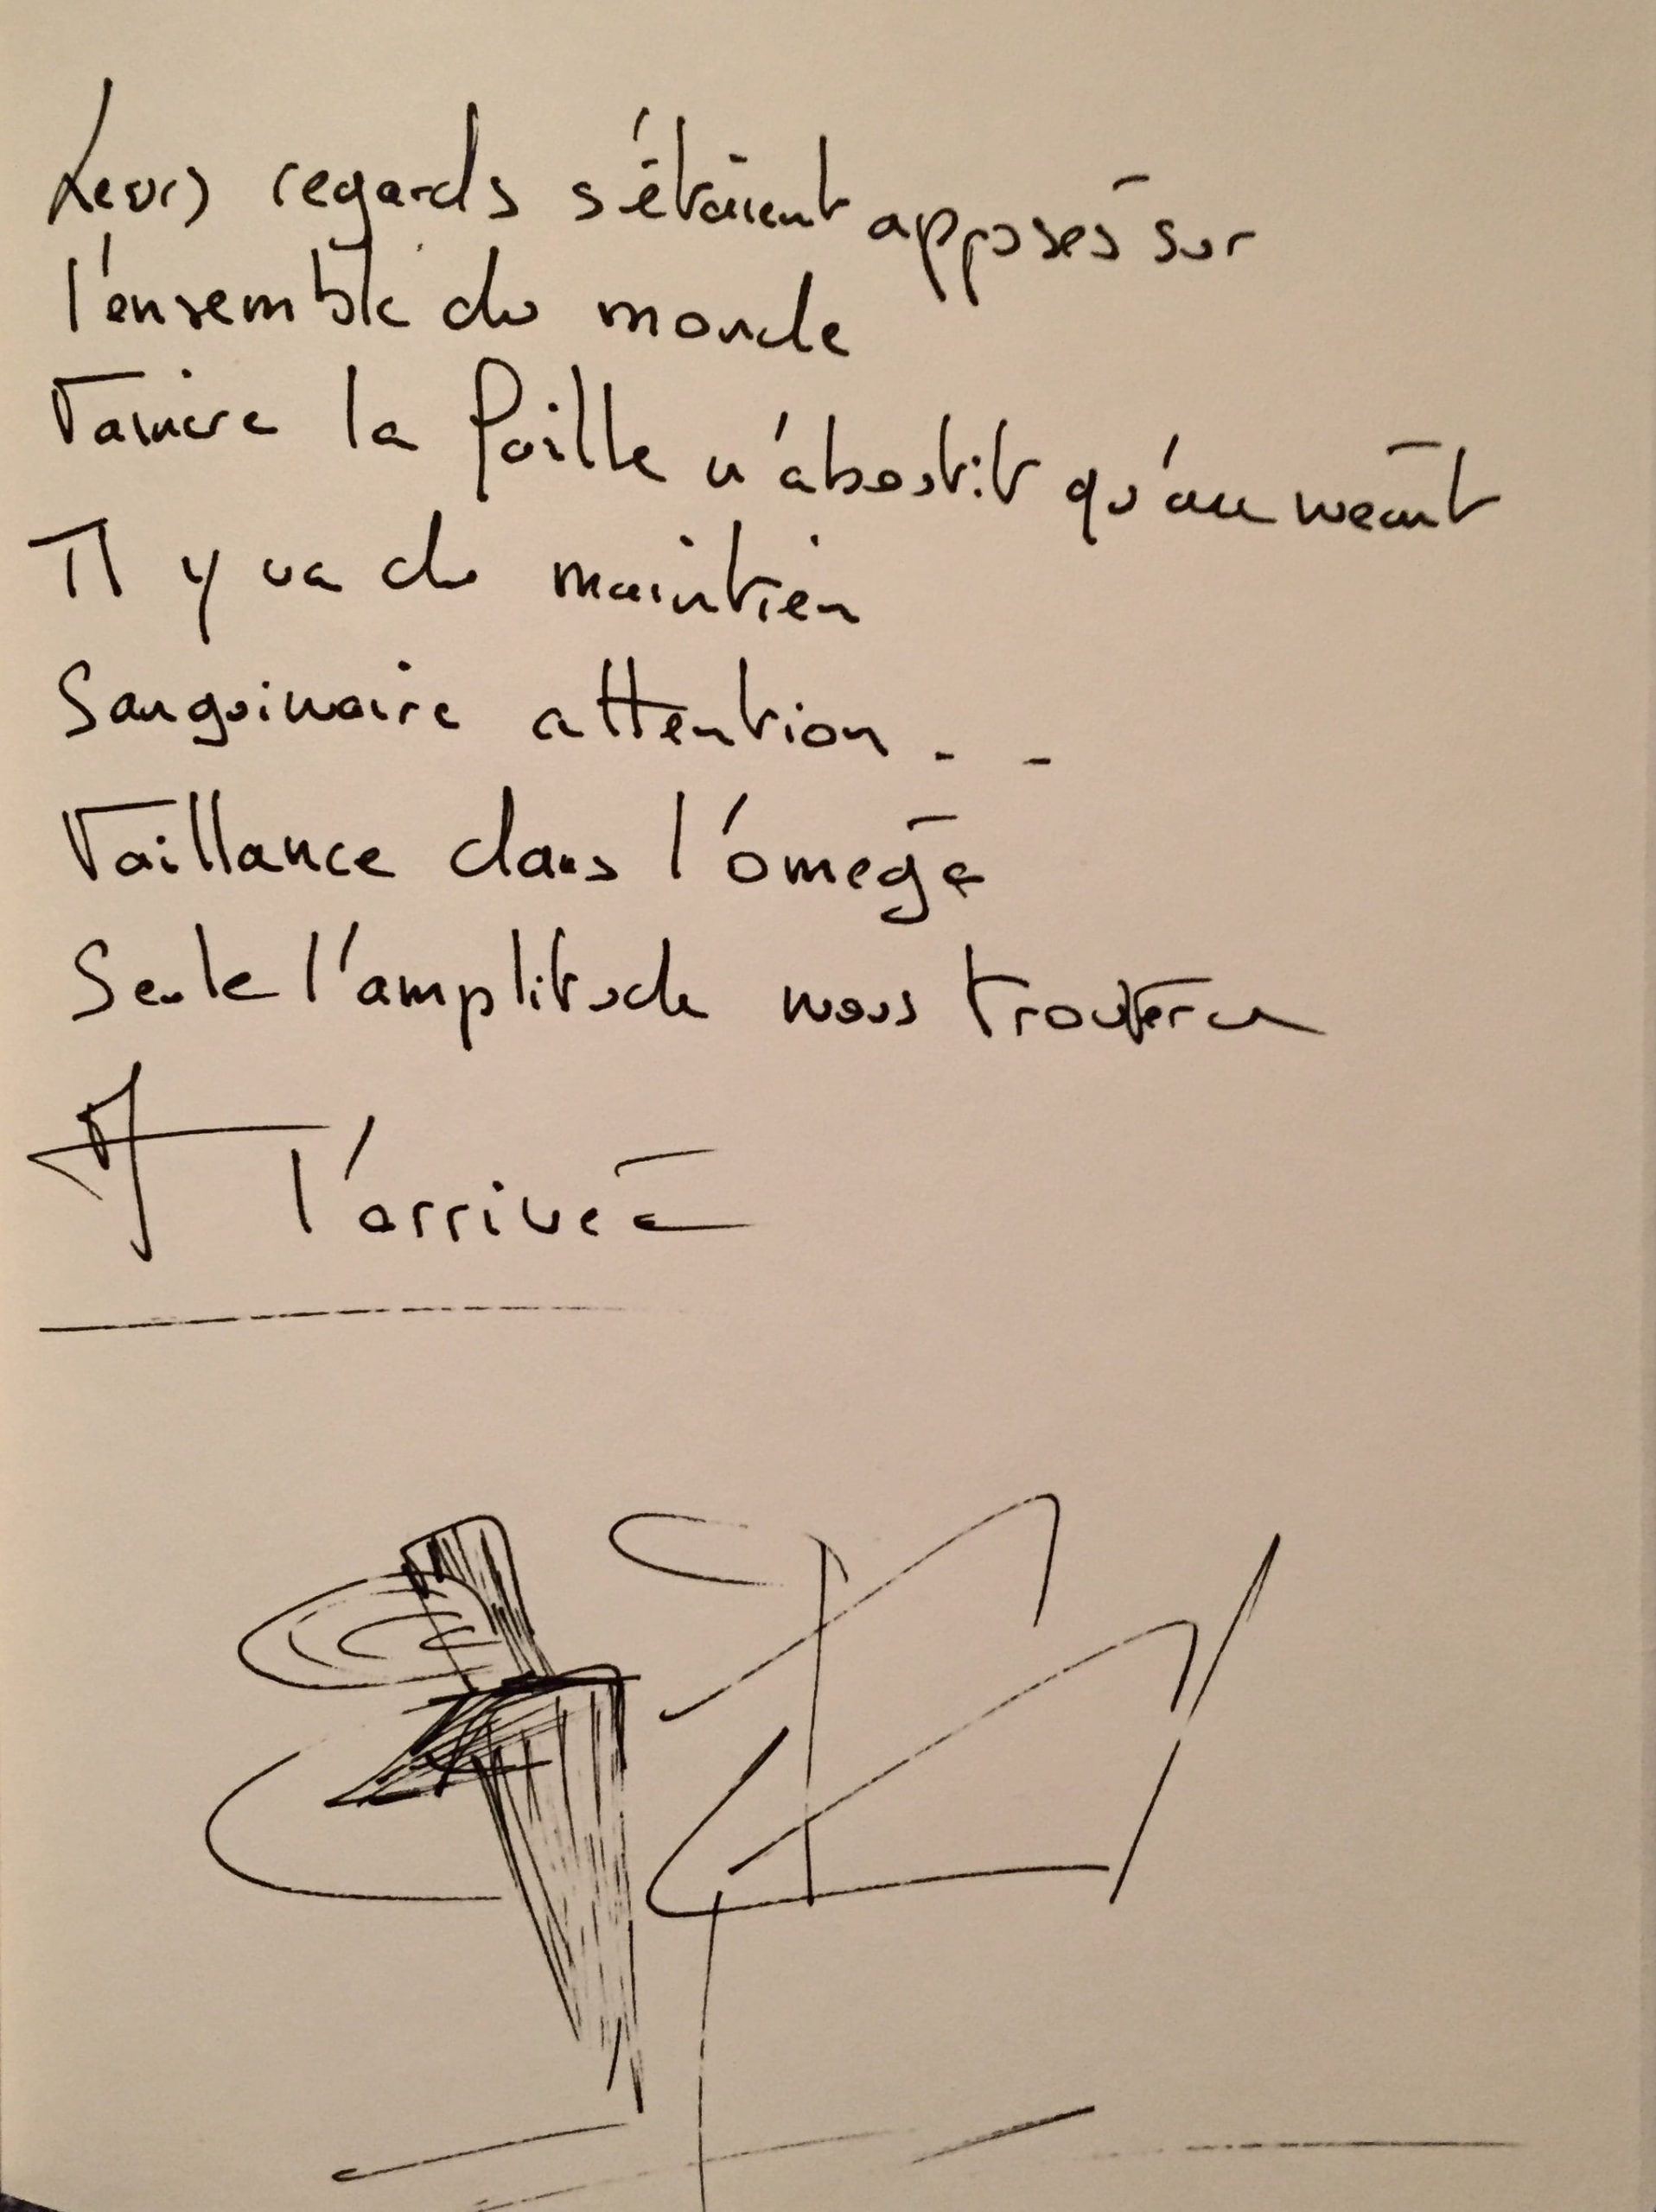 Leurs regards s'étaient apposés sur
l'ensemble du monde
Vaincre la Paille n'aboutit qu'au neant
Il y va du maintien
Sanguinaire attention . .
Vaillance dans l'oméga
Seule l'amplitude nous trouvera
A l'arrivée